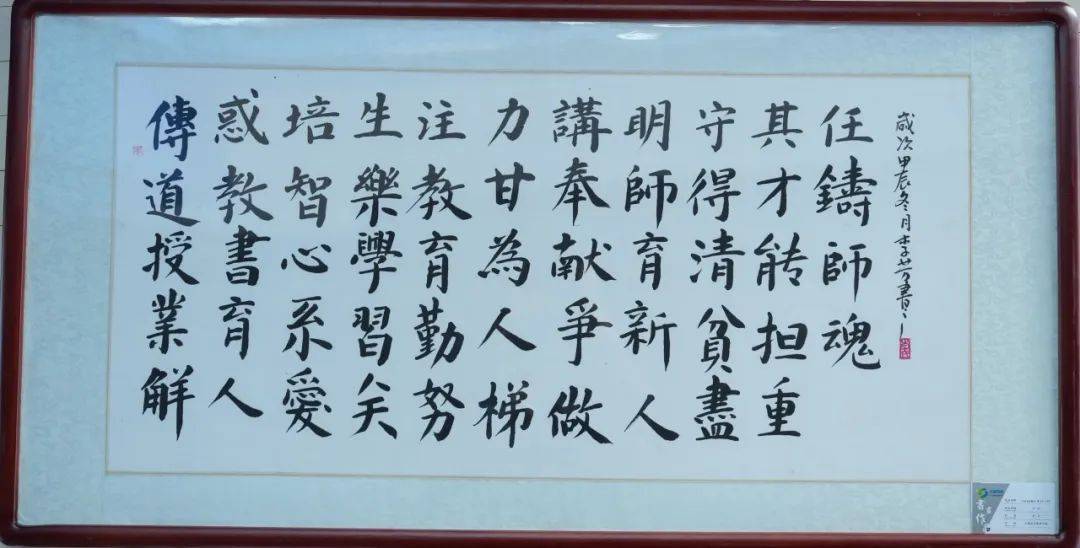 傳道授業解
惑教書育人
培智心系愛
生樂學習关
注教育勤努
力甘為人梯
講奉献爭做
明師育新人
守得清貧盡
其才能担重
任鑄師魂
歲次甲辰冬月李芳書